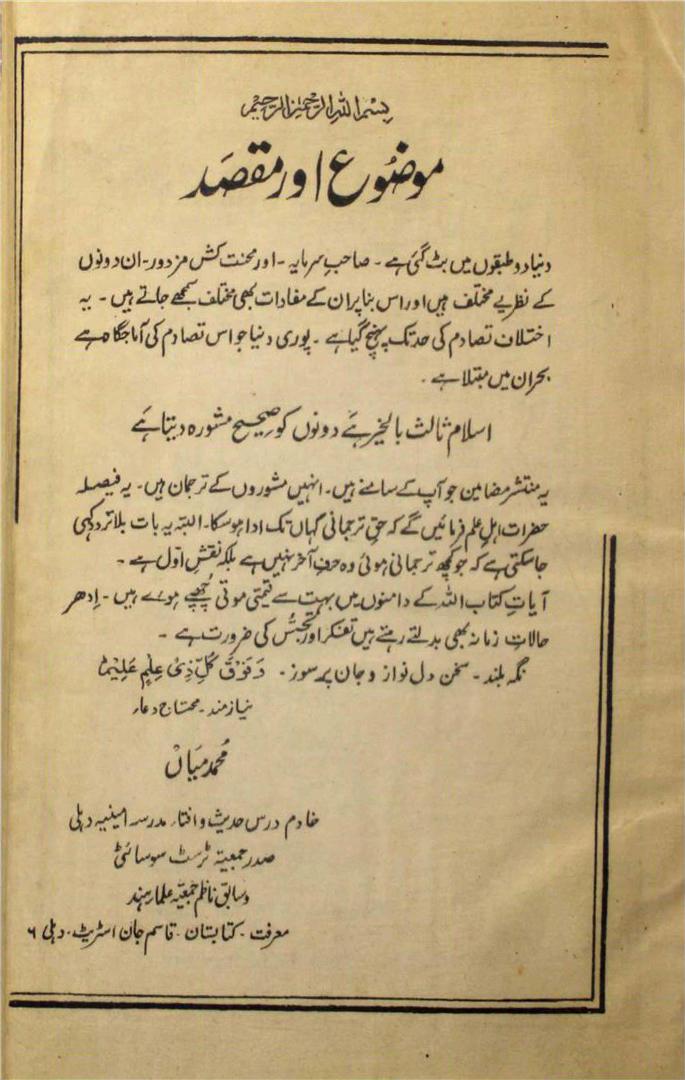 بسم اللہ الرحمٰن الرحیم
موضوع اور مقصد
دنیا دو طبقوں میں بٹ گئی ہے ۔ صاحبِ سرمایہ ۔ اور محنت کش مزدور ۔ ان دونوں
کے نظریے مختلف ہیں اور اس بنا پر ان کے مفادات بھی مختلف سمجھے جاتے ہیں ۔ یہ
اختلاف تصادم کی حد تک پہنچ گیا ہے ۔ پوری دنیا جو اس تصادم کی آماجگاہ ہے
بحران میں مبتلا ہے ۔
اسلام ثالث بالخیر ہے دونوں کو صحیح مشورہ دیتا ہے
یہ منتشر مضامین جو آپ کے سامنے ہیں ۔ انہیں مشوروں کے ترجمان ہیں ۔ یہ فیصلہ
حضرات اہلِ علم فرمائیں گے کہ حقِ ترجمانی کہاں تک ادا ہوسکا ۔ البتہ یہ بات بلا تردد کہی
جاسکتی ہے کہ جو کچھ ترجمانی ہوئی وہ حرفِ آخر نہیں ہے بلکہ نقشِ اوّل ہے ۔
آیاتِ کتاب اللہ کے دامنوں میں بہت سے قیمتی موتی چُھپے ہوے ہیں ۔ اِدھر
حالاتِ زمانہ بھی بدلتے رہتے ہیں تفکر اور تجسُّس کی ضرورت ہے ۔
نگہ بلند ۔ سخن دل نواز و جان پر سوز ۔ وَفَوْقَ كُلِّ ذِیْ عِلْمٍ عَلِیْمٌ
نیاز مند ۔ محتاج دعاء
محمد میاں
خادم درس حدیث و افتاء مدرسہ امینیہ دہلی
صدر جمعیۃ ٹرسٹ سوسائٹی
و سابق ناظم جمعیۃ علماء ہند
معرفت ۔ کتابستان ۔ قاسم جان اسٹریٹ ۔ دہلی ۶